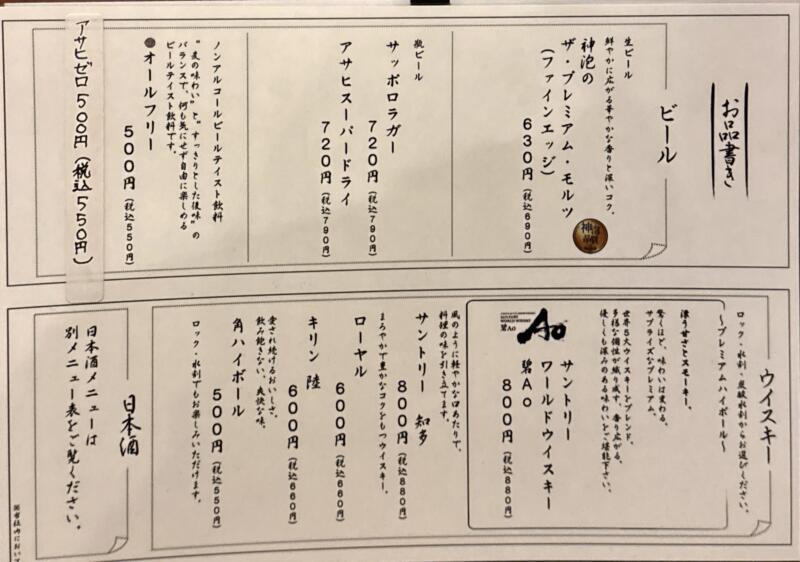 お品書き
ビール
生ビール
鮮やかに広がる華やかな香りと深いコク。
神泡の
ザ・プレミアム・モルツ
(ファインエッジ)
630円(税込690円)
瓶ビール
サッポロラガー
720円(税込790円)
アサヒスーパードライ
720円(税込790円)
ノンアルコールビールテイスト飲料
"麦の味わい"と"すっきりとした後味"の
バランスで、何も気にせず自由に楽しめる
ビールテイスト飲料です。
●オールフリー
500円(税込550円)
アサヒゼロ 500円(税込550円)
ウイスキー
ロック・水割・炭酸水割からお選びください。
〜プレミアムハイボール〜
漂う甘さとスモーキー。
驚くほど、味わいは変わる。
サプライズなプレミアム。
世界5大ウイスキーをブレンド。
多様な個性が織り成す、香り広がる、
優しくも深みのある味わいをご堪能下さい。
Ao
WORLD WHISKY
碧Ao
サントリー
ワールドウイスキー
碧Ao
800円(税込880円)
風のように軽やかな口あたりで、
料理の味を引き立てます。
サントリー 知多
800円(税込880円)
まろやかで豊かなコクをもつウイスキー。
ローヤル
600円(税込660円)
キリン 陸
600円(税込660円)
愛され続けるおいしさ。
飲み飽きない、爽快な味。
角ハイボール
500円(税込550円)
ロック・水割でもお楽しみいただけます。
日本酒
日本酒メニューは
別メニュー表をご覧ください。